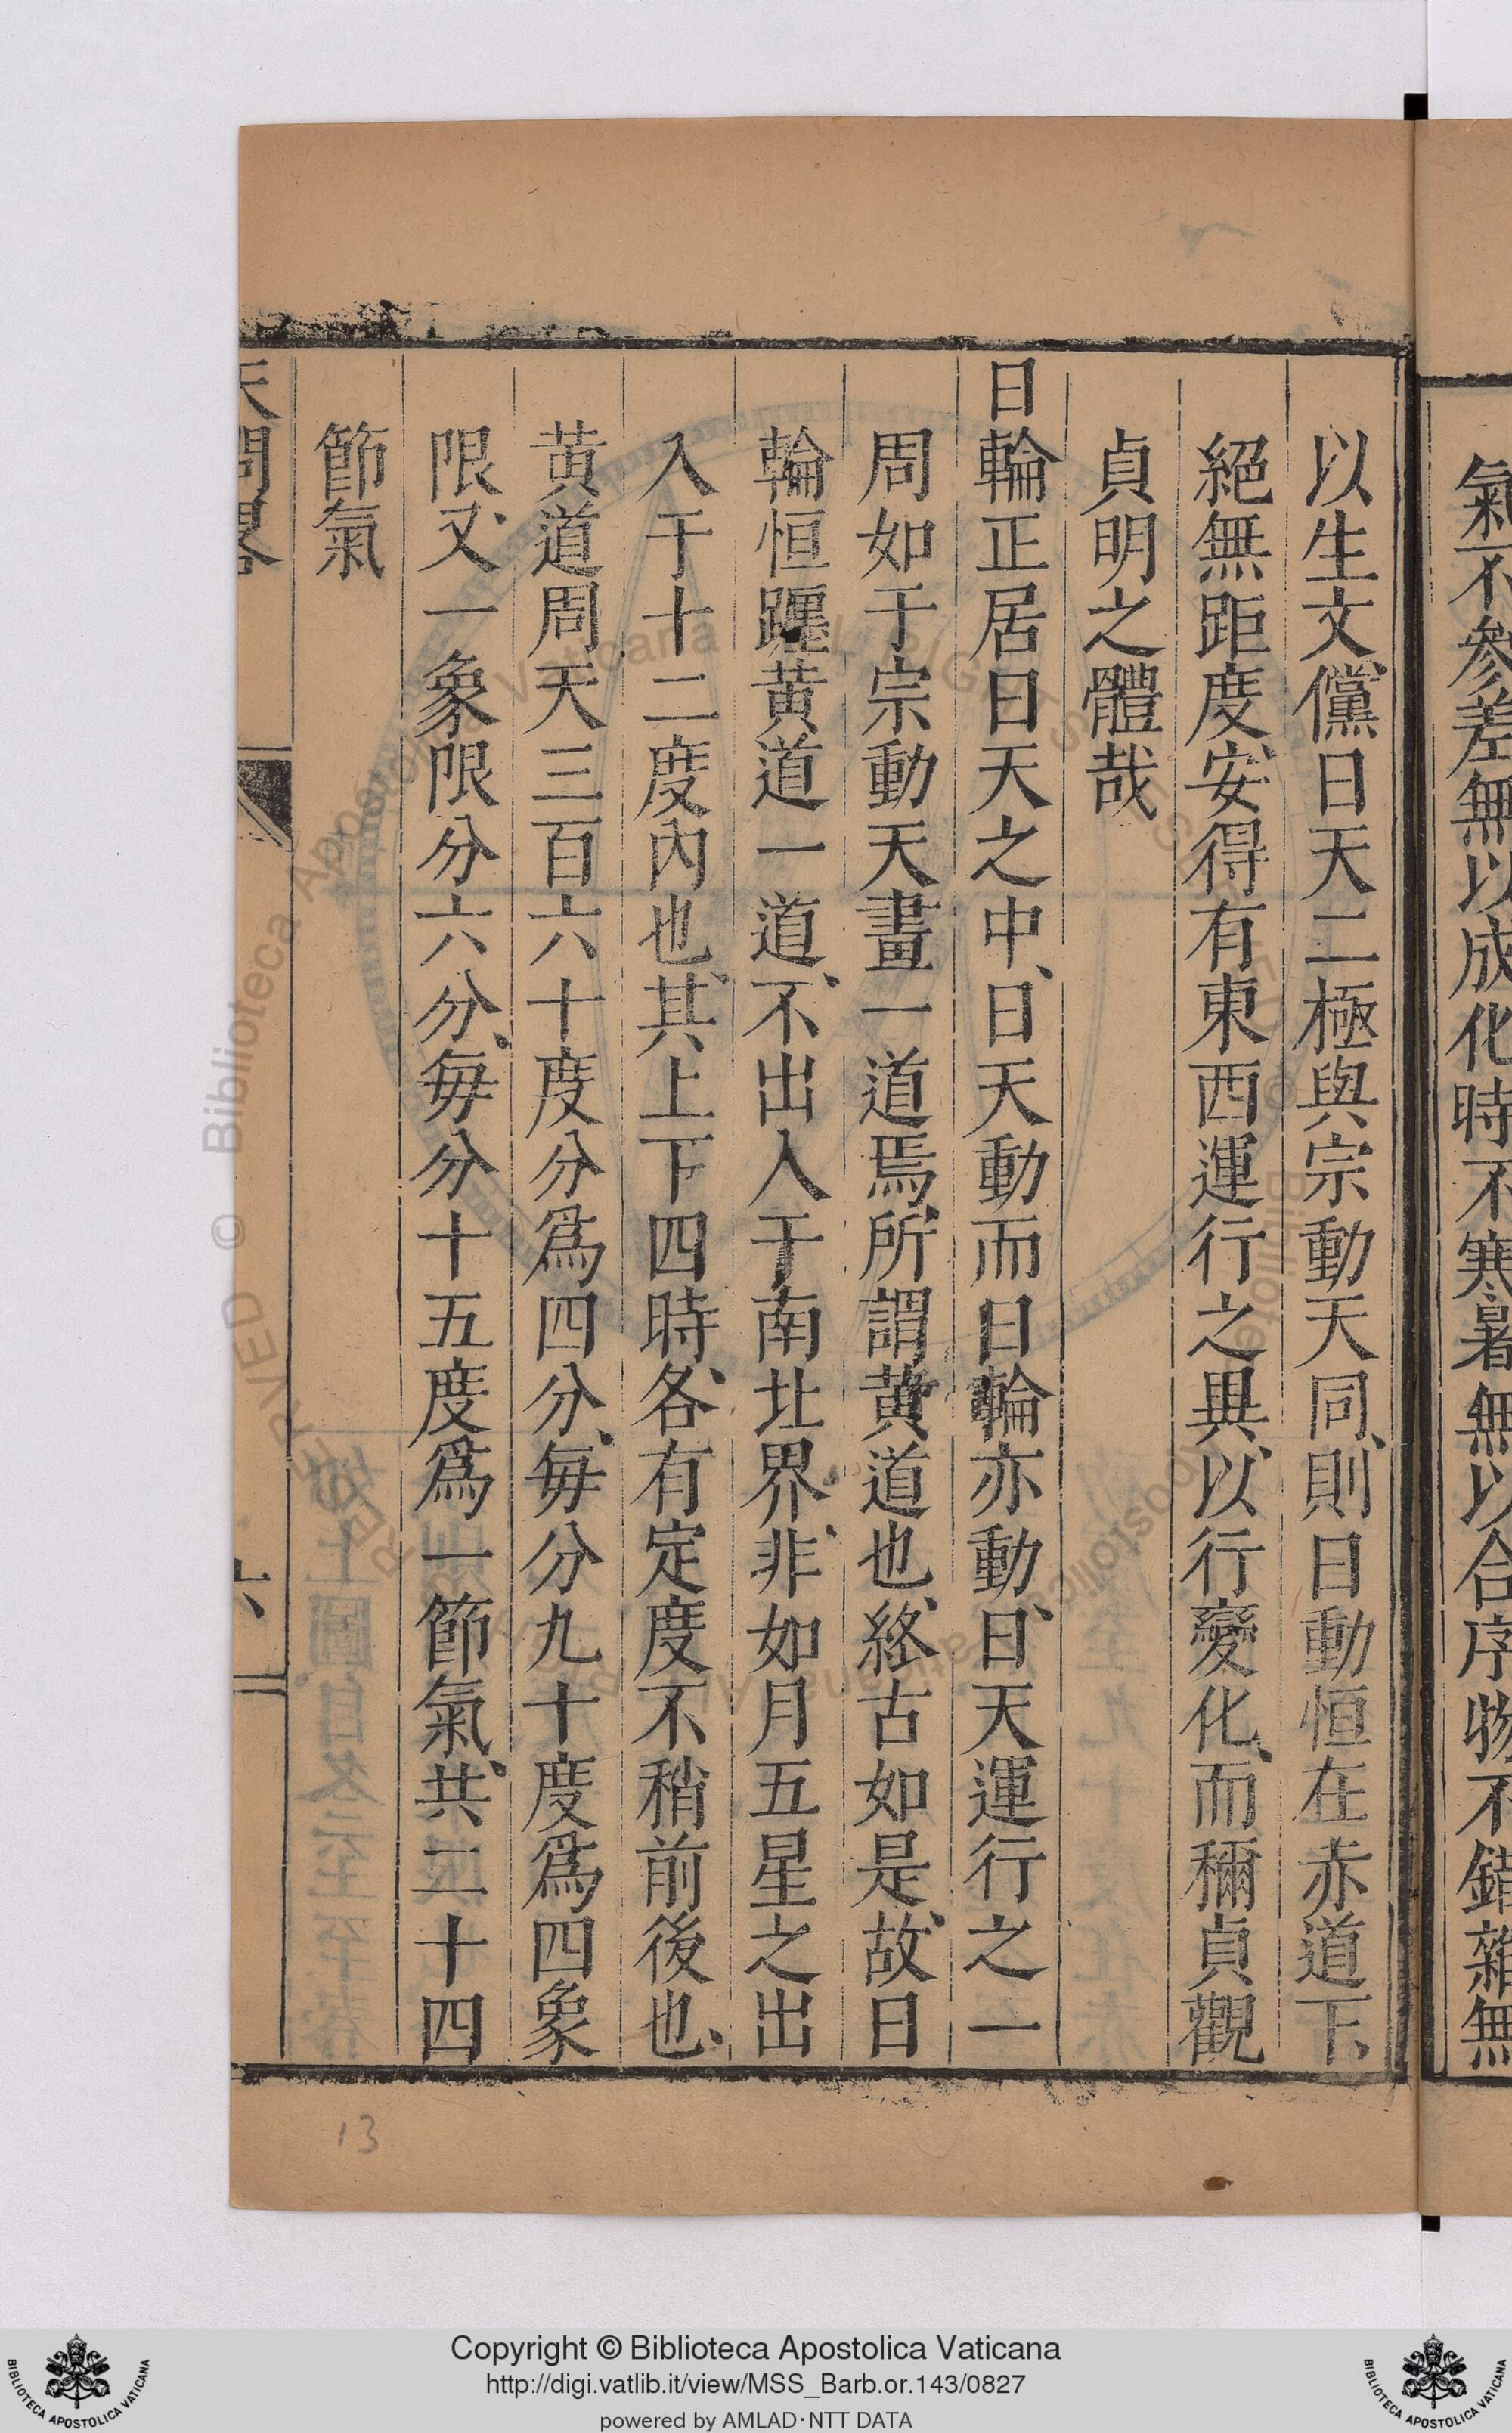 氣不參差無以成化時不寒暑無以合序物不錯雜無
以生文、儻日天二極與宗動天同、則日動恒在赤道下、
絕無距度、安得有東西運行之異、以行變化、而稱貞觀
貞明之體哉
日輪正居日天之中、日天動而日輪亦動、日天運行之一
周如于宗動天畫一道焉、所謂黃道也、終古如是、故日
輪恒躔黃道一道、不出入于南北界、非如月五星之出
入于十二度內也、其上下四時、各有定度不稍前後也、
黃道周天三百六十度分爲四分、每分九十度爲四象
限、又一象限分六分。每分十五度爲一節氣、共二十四
節氣
天問畧
六
13
Copyright © Biblioteca Apostolica Vaticana
http://digi.vatlib.it/view/MSS_Barb.or.143/0827
powered by AMLAD·NTT DATA
BIBLIOTECA APOSTOLICA VATICANA
BIBLIOTECA APOSTOLICA VATICANA